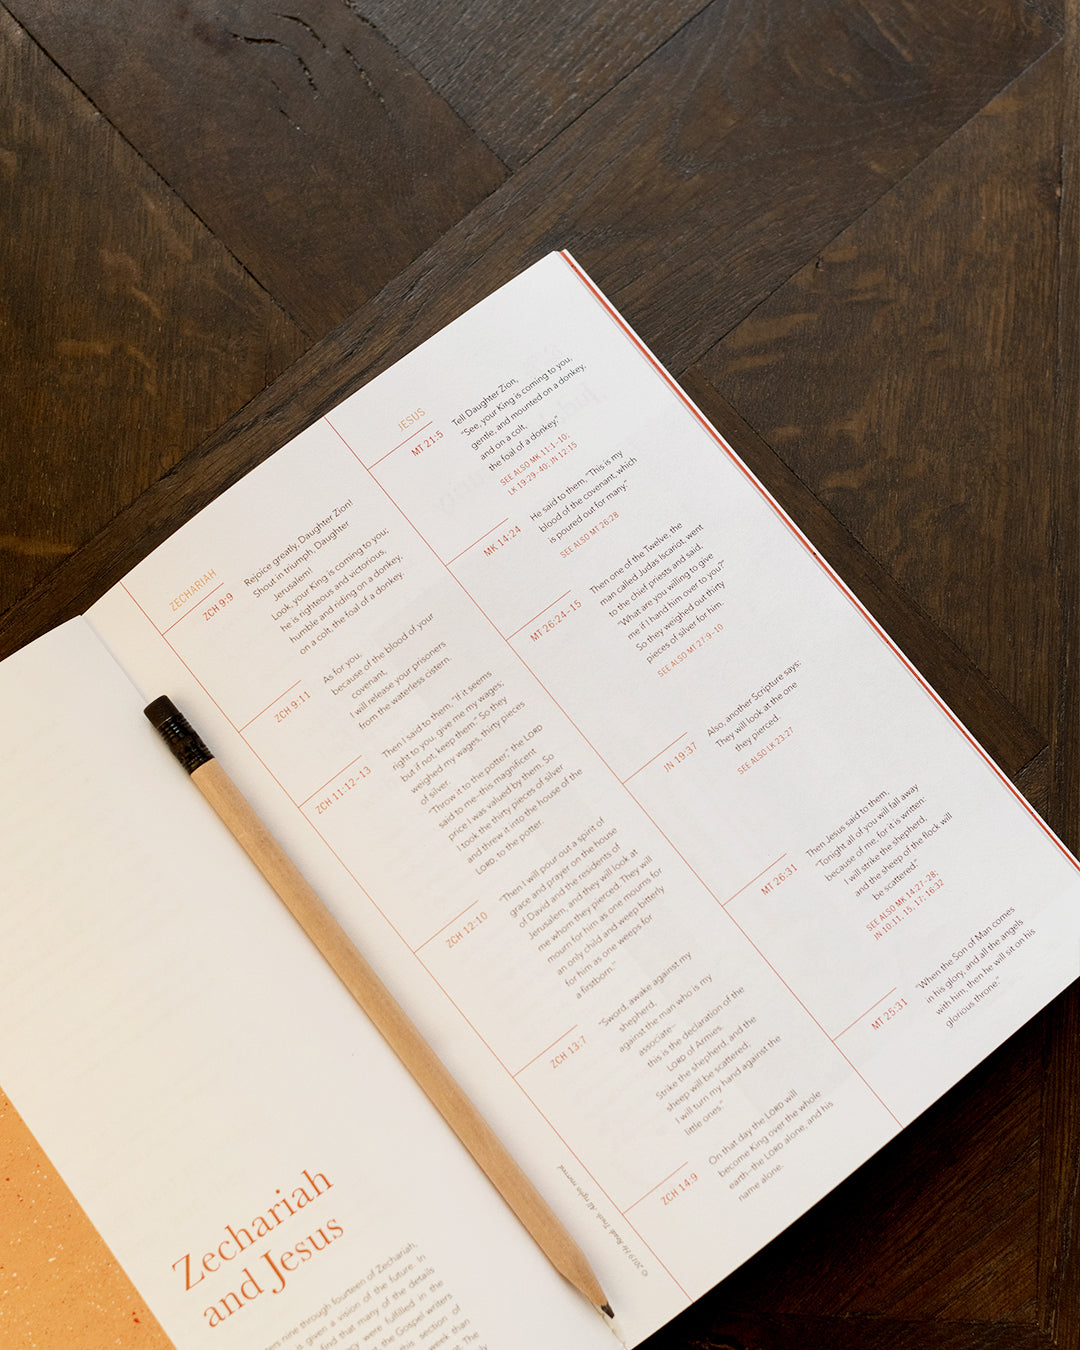 Zechariah
and Jesus
nine through fourteen of Zechariah,
is given a vision of the future. In
find that many of the details
were fulfilled in the
the Gospel writers
this section of
week than
The
ZECHARIAH
ZCH 9:9
Rejoice greatly, Daughter Zion!
Shout in triumph, Daughter
Jerusalem!
Look, your King is coming to you;
he is righteous and victorious,
humble and riding on a donkey,
on a colt, the foal of a donkey.
ZCH 9:11
As for you,
because of the blood of your
covenant,
I will release your prisoners
from the waterless cistern.
ZCH 11:12–13
Then I said to them, "If it seems
right to you, give me my wages;
but if not, keep them." So they
weighed my wages, thirty pieces
of silver.
"Throw it to the potter," the LORD
said to me—this magnificent
price I was valued by them. So
I took the thirty pieces of silver
and threw it into the house of the
LORD, to the potter.
ZCH 12:10
"Then I will pour out a spirit of
grace and prayer on the house
of David and the residents of
Jerusalem, and they will look at
me whom they pierced. They will
mourn for him as one mourns for
an only child and weep bitterly
for him as one weeps for
a firstborn."
ZCH 13:7
"Sword, awake against my
shepherd,
against the man who is my
associate—
this is the declaration of the
LORD of Armies.
Strike the shepherd, and the
sheep will be scattered;
I will turn my hand against the
little ones."
ZCH 14:9
On that day the LORD will
become King over the whole
earth—the LORD alone, and his
name alone.
JESUS
MT 21:5
Tell Daughter Zion,
"See, your King is coming to you,
gentle, and mounted on a donkey,
and on a colt,
the foal of a donkey."
SEE ALSO MK 11:1–10;
LK 19:29–40; JN 12:15
MK 14:24
He said to them, "This is my
blood of the covenant, which
is poured out for many."
SEE ALSO MT 26:28
MT 26:24–15
Then one of the Twelve, the
man called Judas Iscariot, went
to the chief priests and said,
"What are you willing to give
me if I hand him over to you?"
So they weighed out thirty
pieces of silver for him.
SEE ALSO MT 27:9–10
JN 19:37
Also, another Scripture says:
They will look at the one
they pierced.
SEE ALSO LK 23:27
MT 26:31
Then Jesus said to them,
"Tonight all of you will fall away
because of me, for it is written:
I will strike the shepherd,
and the sheep of the flock will
be scattered."
SEE ALSO MK 14:27–28;
JN 10:11, 15, 17; 16:32
MT 25:31
"When the Son of Man comes
in his glory, and all the angels
with him, then he will sit on his
glorious throne."
© 2019 He Reads Truth. All rights reserved.